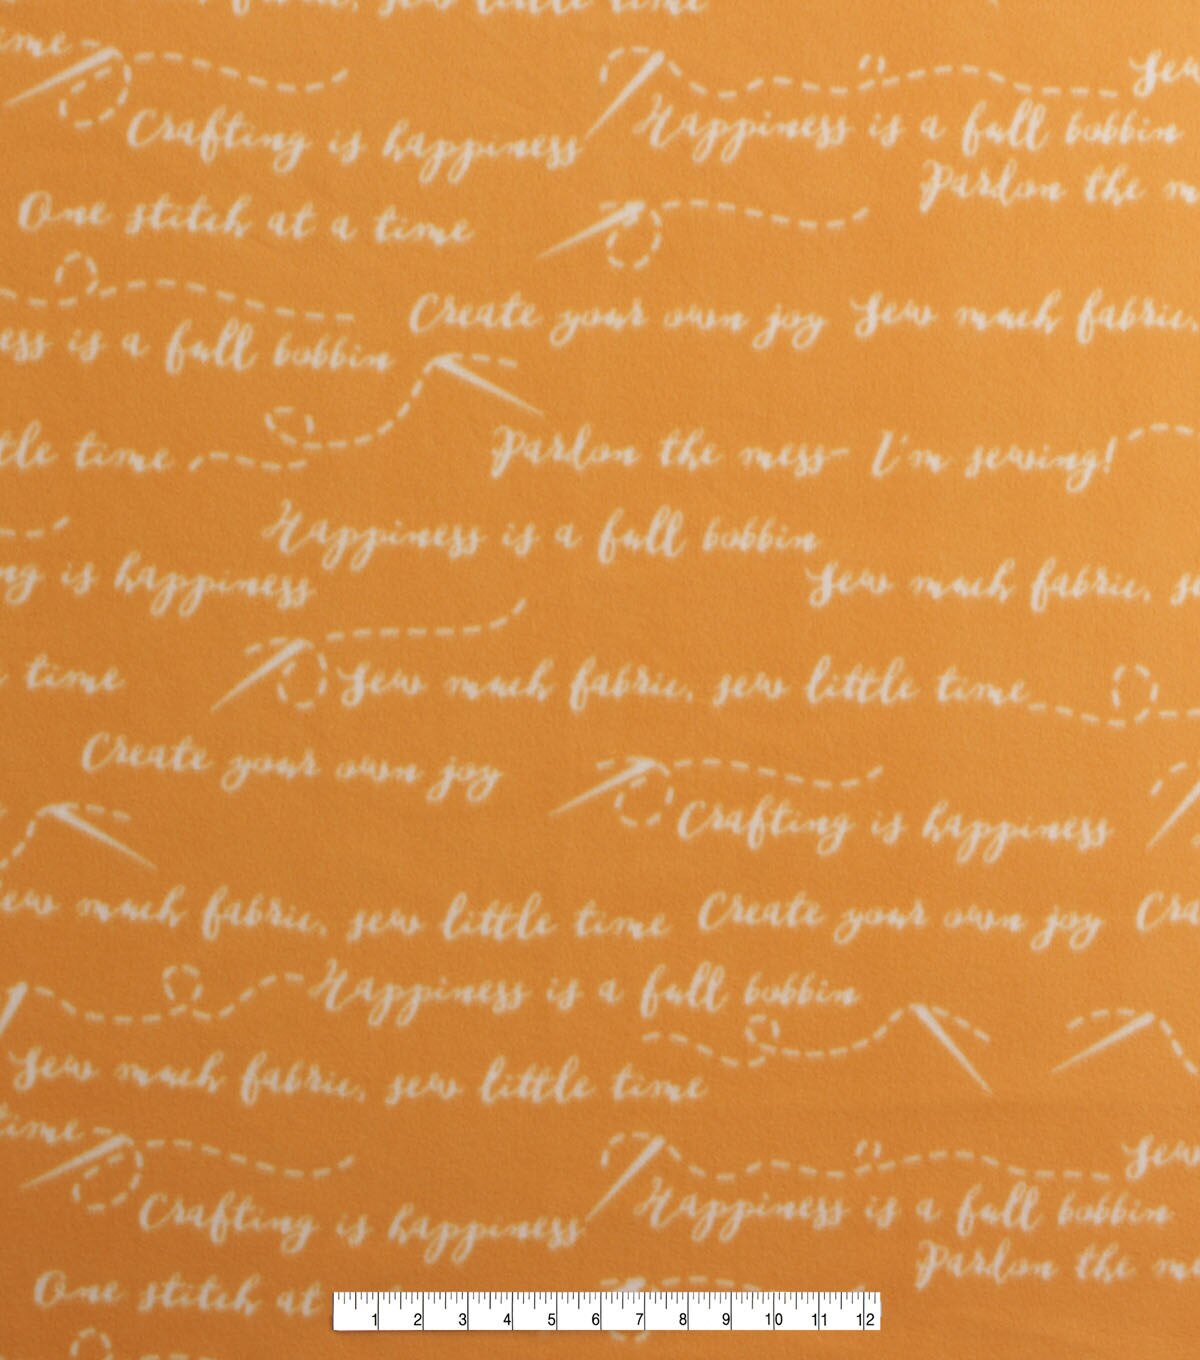 sew little time
time
Sew
Crafting is happiness
Happiness is a full bobbin
Pardon the m
One stitch at a time
Create your own joy
Sew much fabric,
ess is a full bobbin
ttle time
Pardon the mess- I'm sewing!
Happiness is a full bobbin
ng is happiness
Sew much fabric, se
time
Sew much fabric, sew little time
Create your own joy
Crafting is happiness
Sew much fabric, sew little time
Create your own joy
Cra
Happiness is a full bobbin
Sew much fabric, sew little time
time
Sew
Crafting is happiness
Happiness is a full bobbin
Pardon the me
One stitch at
1 2 3 4 5 6 7 8 9 10 11 12